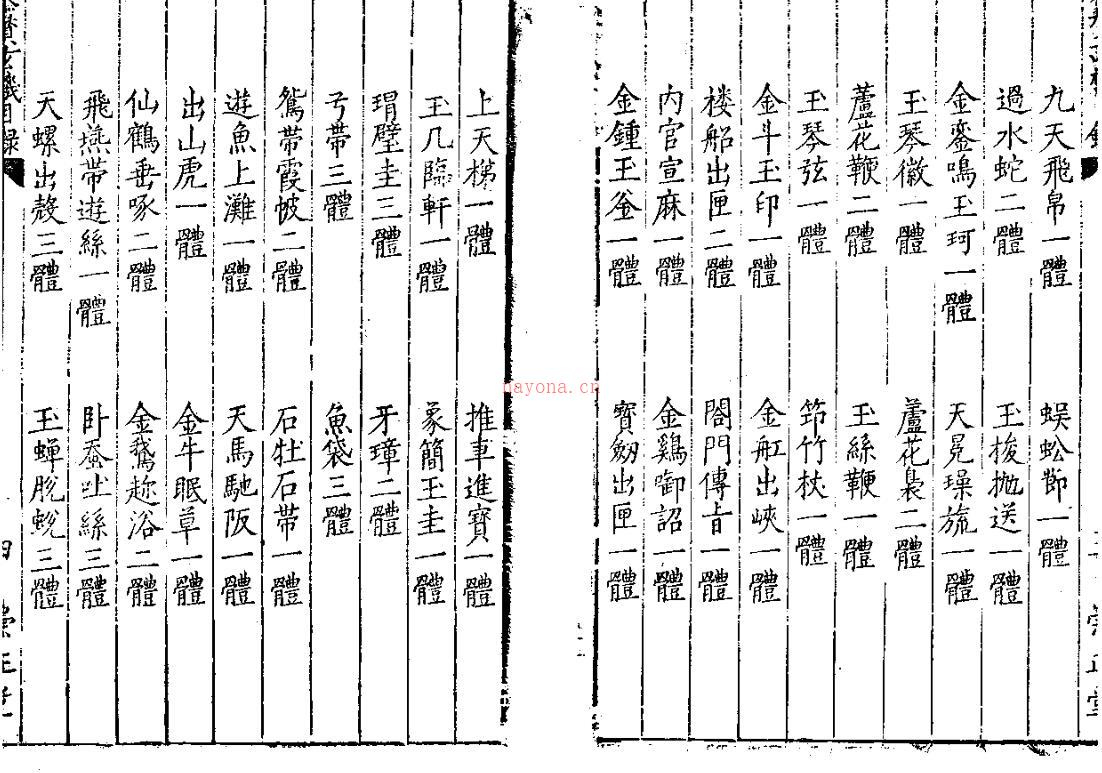 九天飛帛一體 蜈蚣節一體
過水蛇二體 玉梭拋送一體
金鑾鳴玉珂一體 天冕璪旒一體
玉琴徽一體 蘆花裊二體
蘆花鞭二體 玉絲鞭一體
玉琴弦一體 筇竹杖一體
金斗玉印一體 金舡出峽一體
楼船出匣二體 閤門傳旨一體
内官宣麻一體 金鷄啣詔一體
金鍾玉釜一體 寳劔出匣一體
上天梯一體 推車進寳一體
玉几臨軒一體 象簡玉圭一體
瑁璧圭三體 牙璋二體
亐帶三體 魚袋三體
鴛帶霞帔二體 石牡石帶一體
遊魚上灘一體 天馬馳阪一體
出山虎一體 金牛眠草一體
仙鶴垂啄二體 金鵞趂浴二體
飛燕帶遊絲一體 卧蚕吐絲三體
天螺出殼三體 玉蟬脫蛻三體
玄機目録
四 崇正堂
nayona.cn